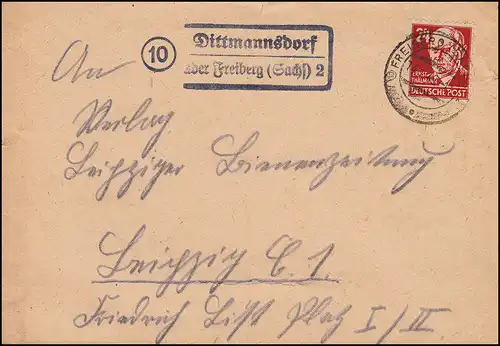 10
Dittmannsdorf
über Freiberg (Sachs) 2
FREIBERG
ERNST
THÄLMANN
DEUTSCHE POST
An
Verlag
Leipziger Bienenzeitung
Leipzig C. 1.
Friedrich List Platz I/II